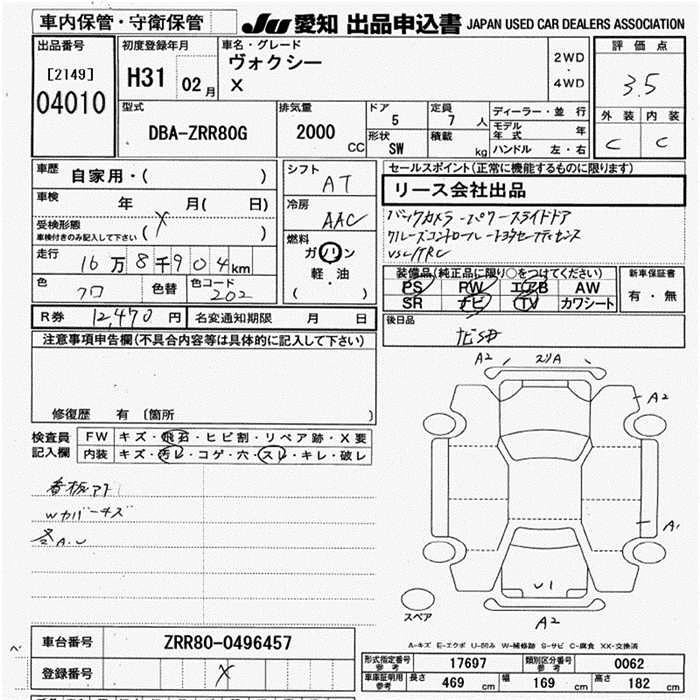 車内保管・守衛保管
JU 愛知 出品申込書 JAPAN USED CAR DEALERS ASSOCIATION
出品番号
[2149]
04010
初度登録年月
H31 02月
車名・グレード
ヴォクシー
X
2WD
・
4WD
評価点
3.5
外装 内装
C C
型式
DBA-ZRR80G
排気量
2000
CC
ドア
5
定員
7人
形状
SW
積載
kg
ディーラー・並行
モデル年式 年
ハンドル 左・右
車歴
自家用・( )
車検
年 月( 日)
受検形態
車検付きのみ記入して下さい
走行
16万8千904km
色
クロ
色替
色コード
202
シフト
AT
冷房
AAC
燃料
ガソリン
軽・油
( )
セールスポイント(正常に機能するものに限ります)
リース会社出品
バックカメラ・パワースライドドア
クルーズコントロール・トヨタセーフティセンス
VSC/TRC
装備品(純正品に限り○をつけてください)
PS PW エアB AW
SR ナビ TV カワシート
新車保証書
有・無
R券 12,470円
名変通知期限 月 日
後日品
ナビSD
注意事項申告欄(不具合内容等は具体的に記入して下さい)
修復歴 有 〔箇所 〕
検査員記入欄
FW キズ・飛石・ヒビ割・リペア跡・X要
内装 キズ・汚レ・コゲ・穴・スレ・キレ・破レ
看板アト
Wカバーキズ
各A.U
A2
A2
A1
U1
A2
スペア
A-キズ E-エクボ U-凹み W-補修跡 S-サビ C-腐食 XX-交換済
車台番号
ZRR80-0496457
登録番号
X
形式指定番号 参考
17697
類別区分番号 参考
0062
車庫証明用 参考
長さ 469 cm
幅 169 cm
高さ 182 cm